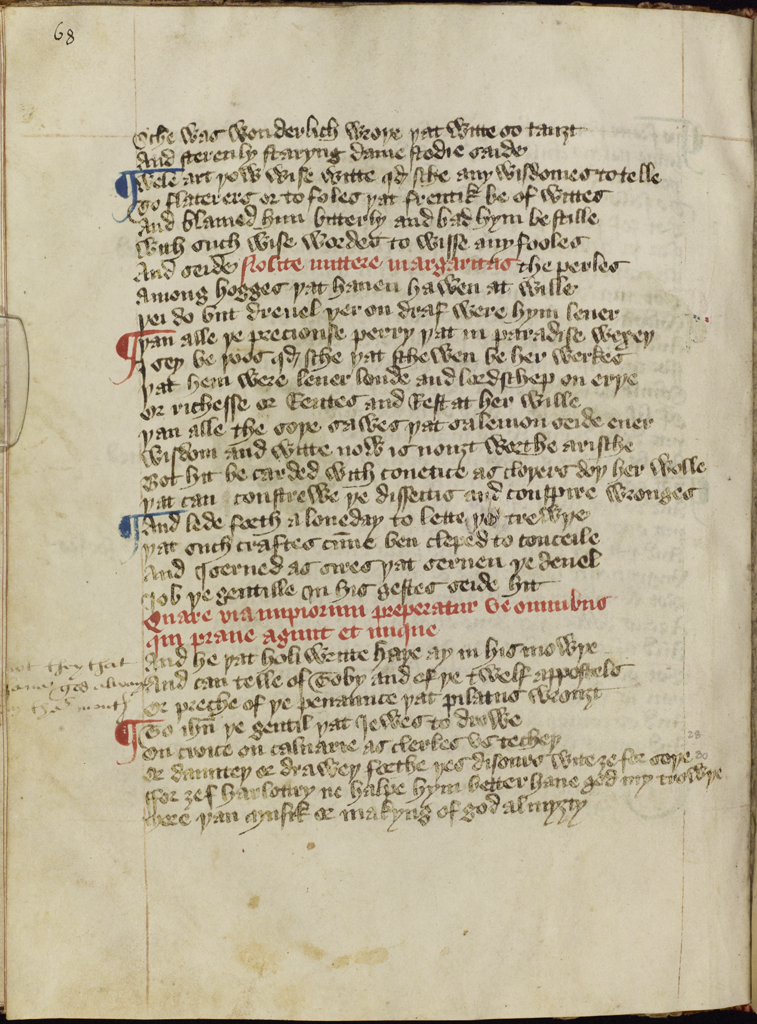 68
Sche was wonderlich wroþe þat witte so tauȝt
And sterenly staryng dame stodie saide
¶ Wele art þow wise witte qd sche any wisdomes to telle
To flatereres or to foles þat frentik be of wittes
And blamed hym bitterly and bad hym be stille
With such wise wordes to wisse any fooles
And seide Nolite mittere margaritas the perles
Among hogges þat hauen hawen at wille
Þei do but dreuel þer on draf were hym leuer
¶ Þan alle þe preciouse perry þat in paradise wexeþ
I sey be þoos qd sche þat schewen be her werkes
Þat hem were leuer londe and lordschep on erþe
Or richesse or Rentes and Rest at her wille
Þan alle the soþe sawes þat salemon seide euer
Wisdom and witte now is nouȝt worthe a rische
Bot hit be carded with coueitice as cloþers doþ her wolle
Þat can construwe þe disseitis and conspire wronges
¶ And lede forth a loueday to lette trewþe
Þat such craftes cunne ben cleped to conceile
And Iserued as sires þat seruen þe deuel
Iob þe gentille In his gestes seide hit
Quare via impiorum preperatur Ve omnibus
Qui praue agunt et inique
And he þat holi writte haþe ay in his mowþe
And can telle of Toby and of þe twelf appostels
Or preche of þe penaunce þat pilatus wrouȝt
¶ To ihu þe gentil þat Jewes to drowe
On croice on caluarie as clerkes vs techeþ
or daunteþ or draweþ forthe þes disours wite ȝe for soþe
ffor ȝef harlotry ne halpe hym better haue god my trowþe
Were þan musik or makyng of god almyȝty
not they that
28
30